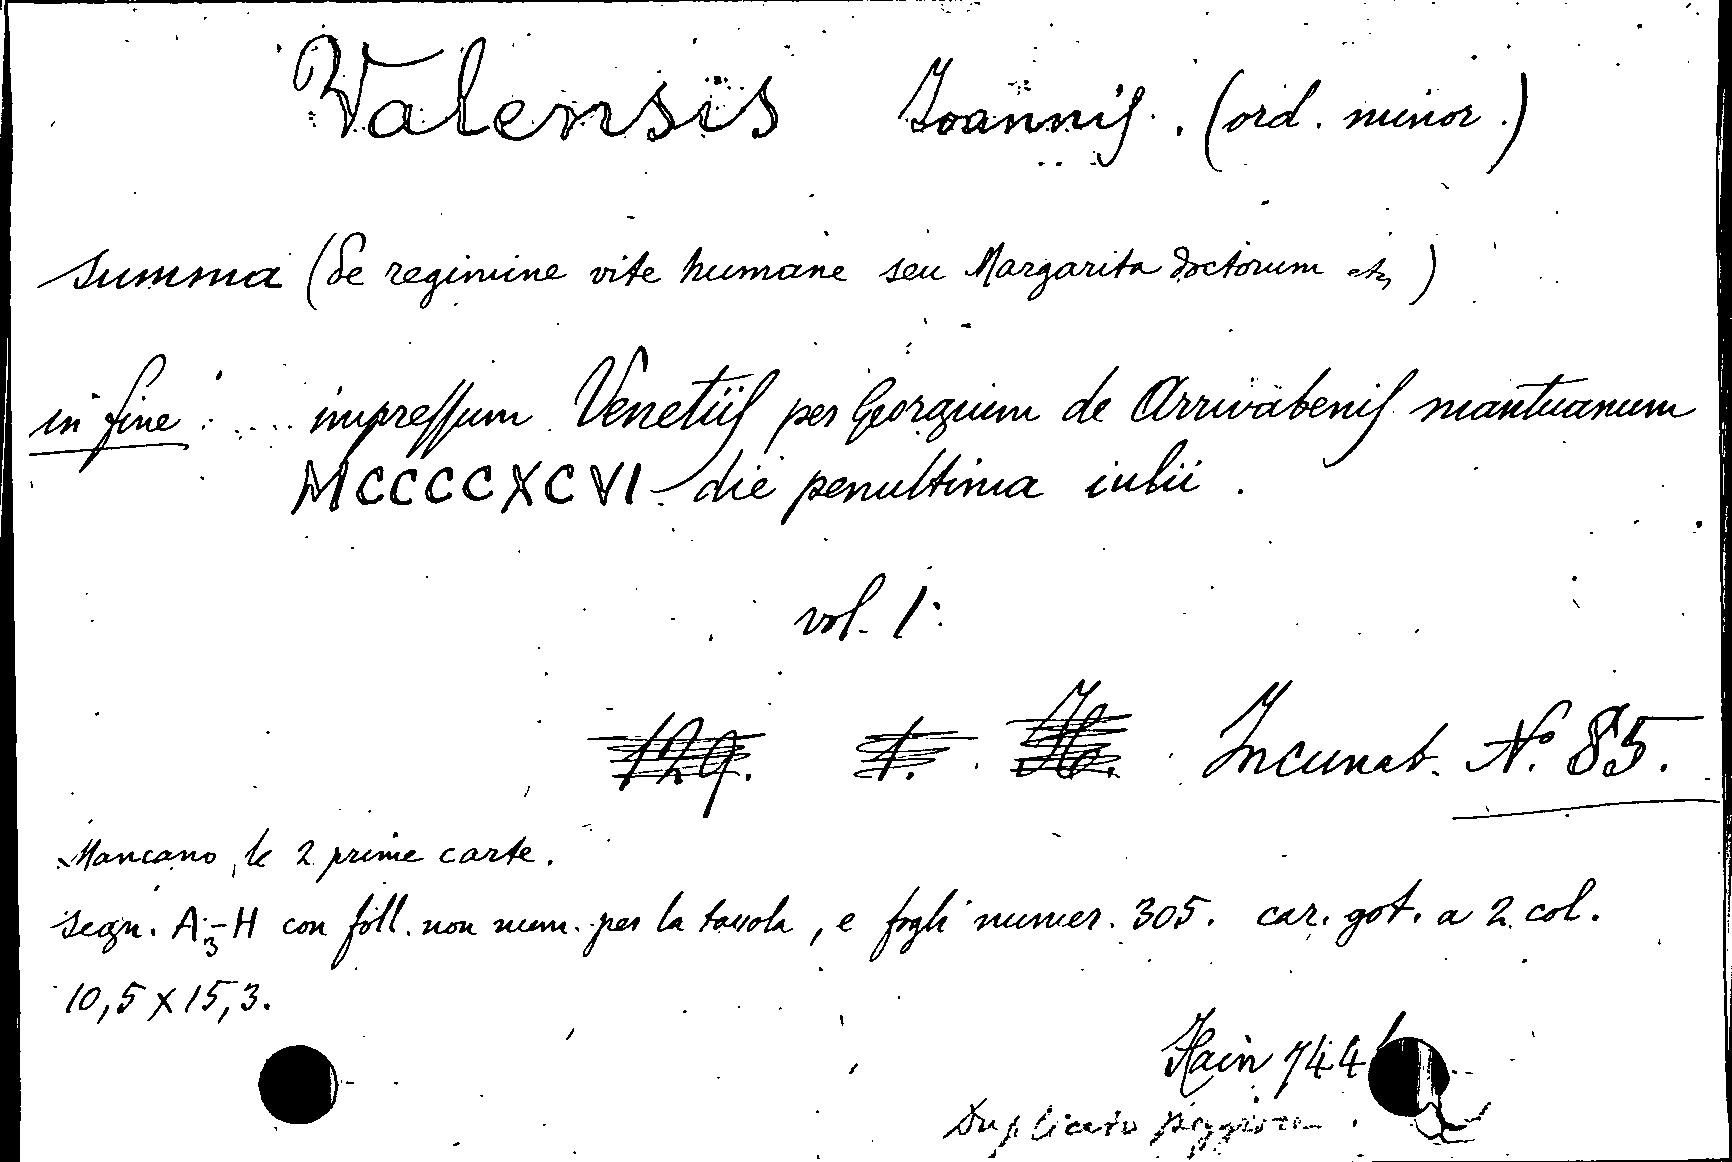 Valensis Joannis. (ord. minor.)
Summa (de regimine vite humane seu Margarita doctorum etc)
in fine: .... impressum Venetiis per Georgium de Arrivabenis mantuanum
MCCCCXCVI die penultima iulii.
vol. 1.
129. 1. Incunab. N.º 85.
Mancano le 2 prime carte.
segn. A3-H con foll. non num. per la tavola, e fogli numer. 305. car. got. a 2 col.
10,5 x 15,3.
Hain 744
Duplicato peggiore.